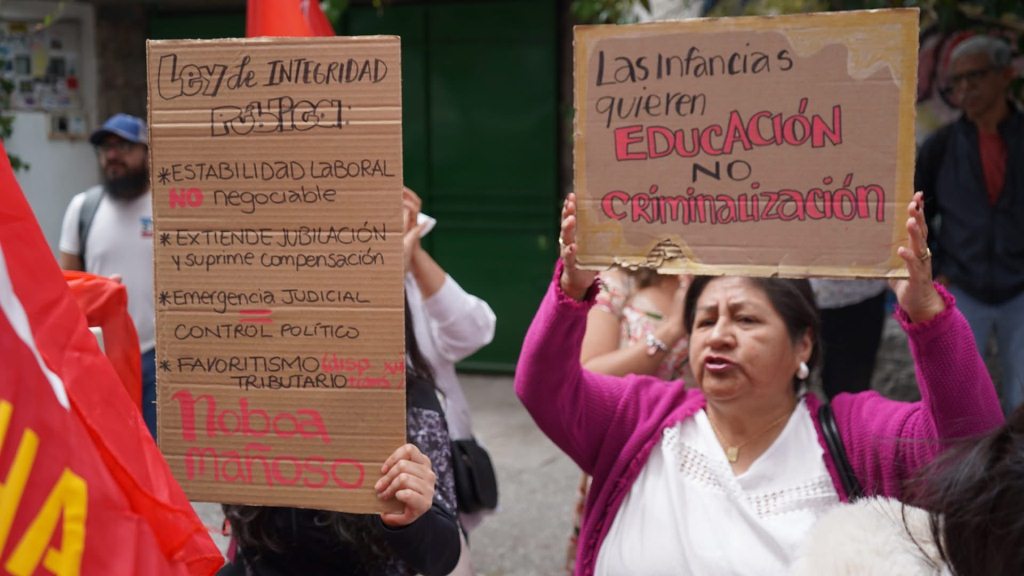 Ley de INTEGRIDAD
PÚBLICA:
*ESTABILIDAD LABORAL
NO negociable
*EXTIENDE JUBILACIÓN
y suprime compensación
*Emergencia JUDICIAL
=
CONTROL POLÍTICO
*FAVORITISMO
TRIBUTARIO
Noboa
mañoso
Las infancias
quieren
EDUCACIÓN
NO
criminalización
HA